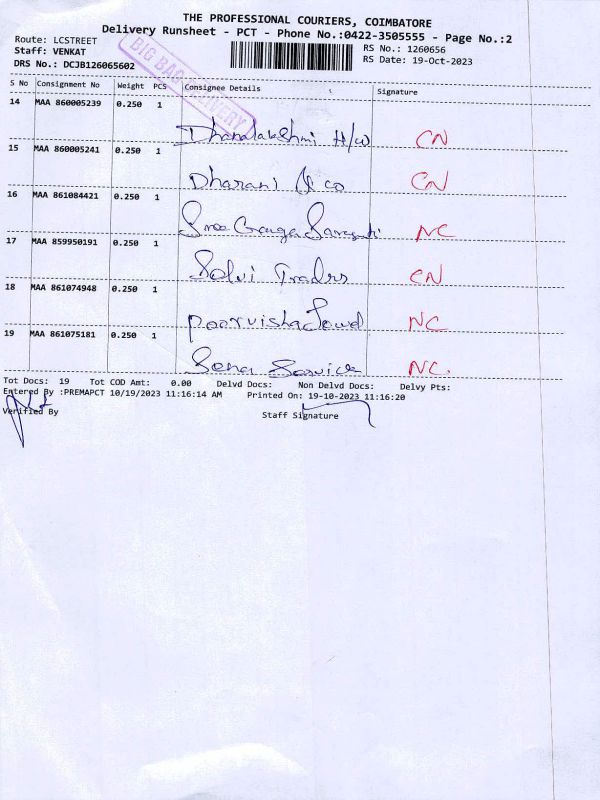 THE PROFESSIONAL COURIERS, COIMBATORE
Delivery Runsheet - PCT - Phone No.:0422-3505555 - Page No.:2
Route: LCSTREET
RS No.: 1260656
Staff: VENKAT
RS Date: 19-Oct-2023
DRS No.: DCJB126065602
BIG BAG DELIVERY
S No Consignment No Weight PCS Consignee Details Signature
14 MAA 860005239 0.250 1
Dhanalakshmi H/w CN
15 MAA 860005241 0.250 1
Dharani & co CN
16 MAA 861084421 0.250 1
Sree Ganga NC
17 MAA 859950191 0.250 1
Selvi Traders CN
18 MAA 861074948 0.250 1
Poorvisha NC
19 MAA 861075181 0.250 1
Sena Service NC.
Tot Docs: 19 Tot COD Amt: 0.00 Delvd Docs: Non Delvd Docs: Delvy Pts:
Entered By :PREMAPCT 10/19/2023 11:16:14 AM Printed On: 19-10-2023 11:16:20
Verified By
Staff Signature